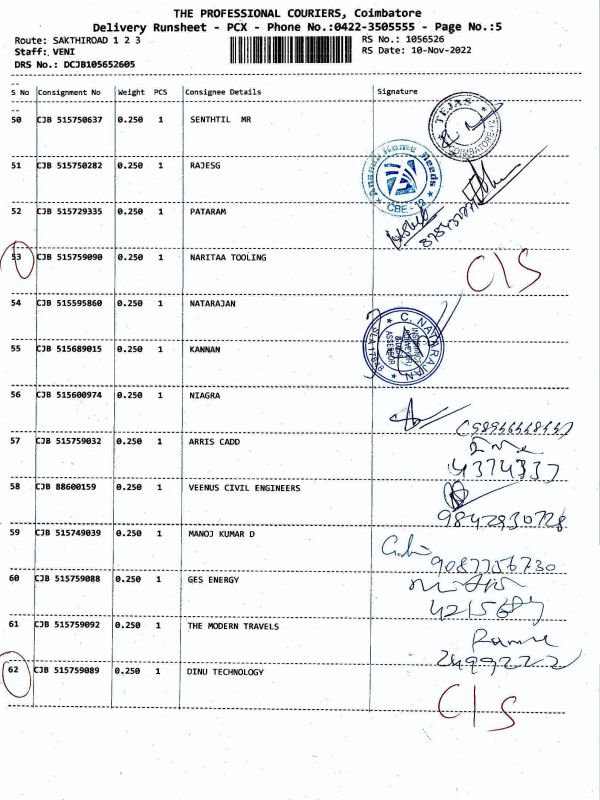 THE PROFESSIONAL COURIERS, Coimbatore
Delivery Runsheet - PCX - Phone No.:0422-3505555 - Page No.:5
Route: SAKTHIROAD 1 2 3 RS No.: 1056526
Staff: VENI RS Date: 10-Nov-2022
DRS No.: DCJB105652605
S No Consignment No Weight PCS Consignee Details Signature
50 CJB 515750637 0.250 1 SENTHTIL MR
TEJAS
COIMBATORE-12
51 CJB 515750282 0.250 1 RAJESG
Ananda Home Needs
CBE - 12
52 CJB 515729335 0.250 1 PATARAM
53 CJB 515759090 0.250 1 NARITAA TOOLING
C/S
54 CJB 515595860 0.250 1 NATARAJAN
C. NATARAJAN
55 CJB 515689015 0.250 1 KANNAN
56 CJB 515600974 0.250 1 NIAGRA
57 CJB 515759032 0.250 1 ARRIS CADD
4374337
58 CJB 88600159 0.250 1 VEENUS CIVIL ENGINEERS
9842930728
59 CJB 515749039 0.250 1 MANOJ KUMAR D
9087756730
60 CJB 515759088 0.250 1 GES ENERGY
61 CJB 515759092 0.250 1 THE MODERN TRAVELS
2499222
62 CJB 515759089 0.250 1 DINU TECHNOLOGY
C/S